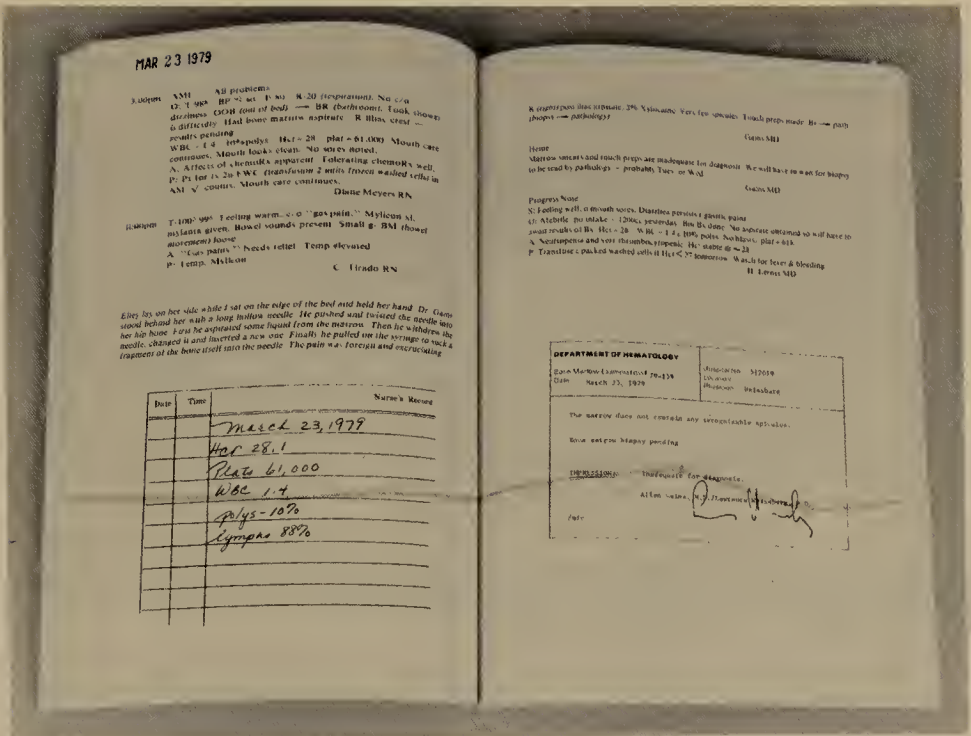 MAR 23 1979
3:00pm AMI All problems
O: T-98⁸ BP R-20 (respiration). No c/o
dizziness OOB (out of bed) → BR (bathroom). Took shower
s̄ difficulty Had bone marrow aspirate R iliac crest –
results pending
WBC - 1.4 10%polys Hct - 28 plat = 61,000 Mouth care
continues. Mouth looks clean. No sores noted.
A. Affects of chemoRx apparent Tolerating chemoRx well.
P: Pt for 2u FWC (transfusion 2 units frozen washed cells) in
AM √ counts. Mouth care continues.
Diane Meyers RN
T-100² Feeling warm. c/o "gas pain." Mylicon st.
mylanta given. Bowel sounds present Small g- BM (bowel
movement) loose
A "Gas pains" Needs relief Temp elevated
P- Temp. Mylicon
C Tirado RN
Ellen lay on her side while I sat on the edge of the bed and held her hand Dr Gains
stood behind her with a long hollow needle He pushed and twisted the needle into
her hip bone First he aspirated some liquid from the marrow Then he withdrew the
needle, changed it and inserted a new one Finally he pulled on the syringe to suck a
fragment of the bone itself into the needle The pain was foreign and excruciating
Date Time Nurse's Record
March 23, 1979
Hct 28.1
Plats 61,000
WBC 1.4
polys - 10%
lymphs 88%
R posterior iliac aspirate. 2% Xylocaine Very few spicules Touch preps made Bx → path
(biopsy → pathology)
Gains MD
Heme
Marrow smears and touch preps are inadequate for diagnosis We will have to wait for biopsy
to be read by pathology - probably Tues or Wed
Gains MD
Progress Note
S: Feeling well, no mouth sores. Diarrhea persists gastric pains
O: Afebrile po intake - 1200cc yesterday Bm Bx done No aspirate obtained so will have to
await results of Bx Hct = 28 WBC - 1.4 10% polys No blasts plat = 61k
A Neutropenic and very thrombocytopenic Hct stable at ~ 28
P Transfuse packed washed cells if Hct < 27 tomorrow Watch for fever & bleeding
MD
DEPARTMENT OF HEMATOLOGY
Bone Marrow Examination# 79-159
Date March 23, 1979
The marrow does not contain any recognizable spicules.
Bone marrow biopsy pending
IMPRESSION: Inadequate for diagnosis.
Allen Gains, M.D./Lawrence